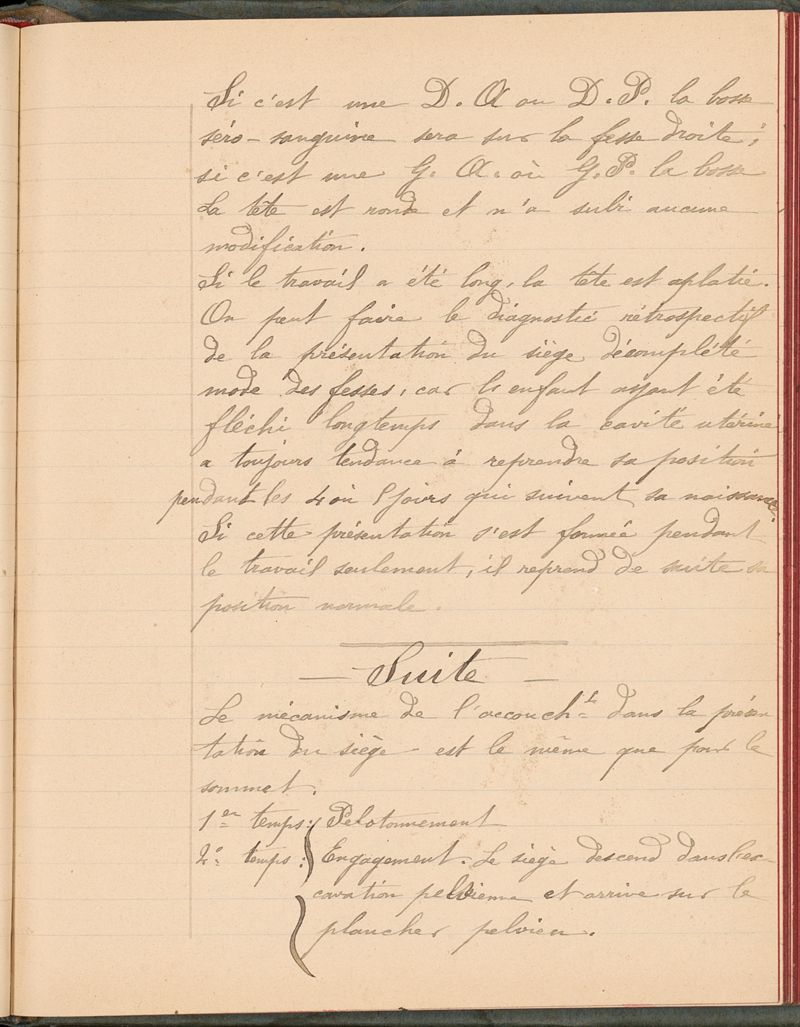 Si c'est une D. A ou D. P. la bosse
séro-sanguine sera sur la fesse droite ;
si c'est une G. A. où G. P. la bosse
La tête est ronde et n'a subi aucune
modification.
Si le travail a été long, la tête est aplatie.
On peut faire le diagnostic rétrospectif
de la présentation du siège décomplété
mode des fesses, car l'enfant ayant été
fléchi longtemps dans la cavité utérine
a toujours tendance à reprendre sa position
pendant les 4 où 5 jours qui suivent sa naissance.
Si cette présentation s'est formée pendant
le travail seulement, il reprend de suite sa
position normale.
— Suite —
Le mécanisme de l'accouch.t dans la présen
tation du siège - est le même que pour le
sommet.
1er temps : Pelotonnement
2e temps : Engagement. Le siège descend dans l'ex-
cavation pelvienne et arrive sur le
plancher pelvien.